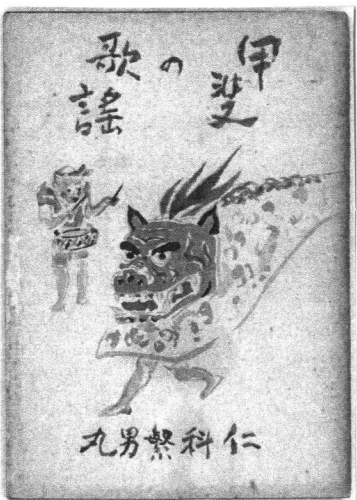 甲斐の歌謡
仁科繁男丸